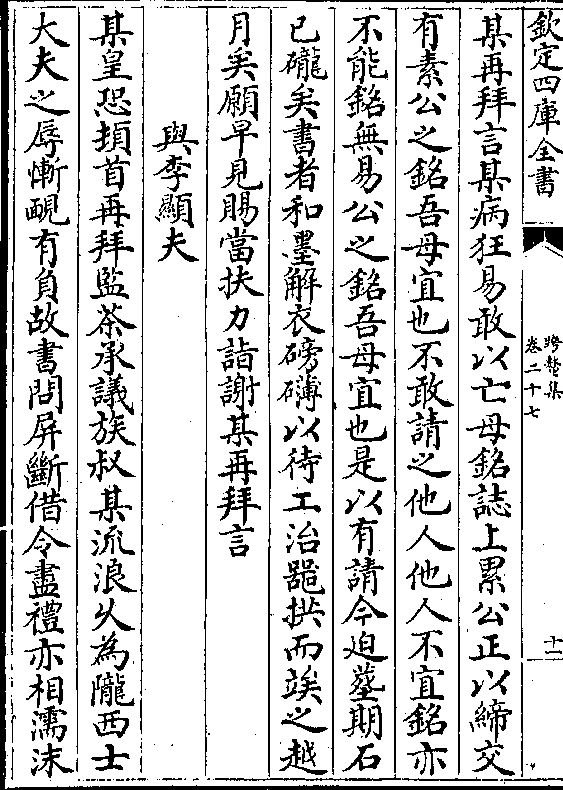 欽定四庫全書
跨鼇集
卷二十七
十二
某再拜言某病狂易敢以亡母銘誌上累公正以締交
有素公之銘吾母宜也不敢請之他人他人不宜銘亦
不能銘無易公之銘吾母宜也是以有請今迫塟期石
已礲矣書者和墨解衣磅礴以待工治器拱而竢之越
月矣願早見賜當扶力詣謝某再拜言
與李顯夫
某皇恐頓首再拜監茶承議族叔某流浪乆為隴西士
大夫之辱慚靦有負故書問屏斷借令盡禮亦相濡沫